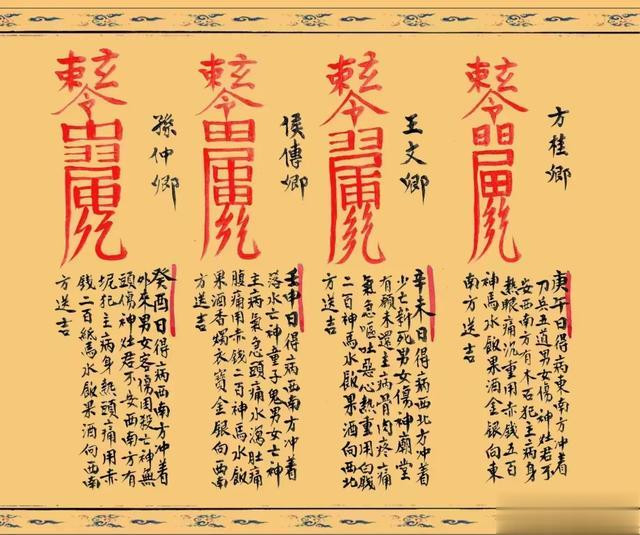 方桂卿
庚午日得病東南方冲着
刀兵五道男女傷神灶君不
安西南方有木石犯主病身
熱眼痛沉重用赤錢五百
神馬水飯果酒金銀向東
南方送吉
王文卿
辛未日得病西北方冲着
少亡新死男女傷神廟堂
有願未還主病骨肉疼痛
氣急嘔吐惡心熱重用白錢
二百神馬水飯果酒向西北
方送吉
侯傳卿
壬申日得病西南方冲着
落水亡神童子鬼男女亡神
主病氣急頭痛水瀉肚痛
腹痛用赤錢二百神馬水飯
果酒香燭衣寶金銀向西南
方送吉
孫仲卿
癸酉日得病西南方冲着
外來男女客傷困殺亡神無
頭傷神灶君不安西南方有
坭犯主病身熱頭痛用赤
錢二百紙馬水飯果酒向西南
方送吉